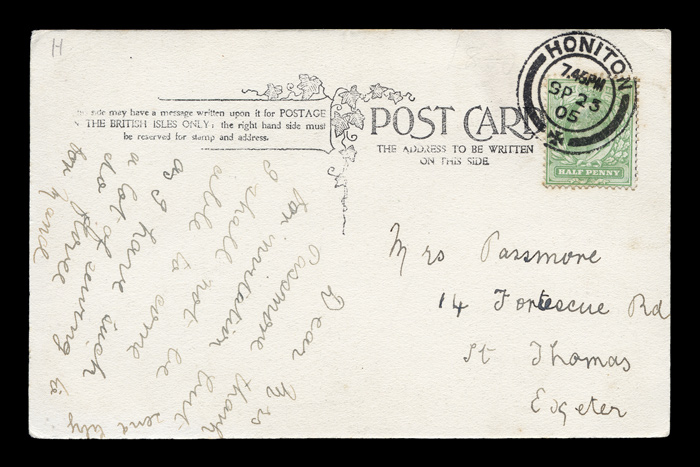 H
HONITON
7.45PM
SP 23
05
HALF PENNY
side may have a message written upon it for POSTAGE
THE BRITISH ISLES ONLY; the right hand side must
be reserved for stamp and address.
POST CARD
THE ADDRESS TO BE WRITTEN
ON THIS SIDE.
Mrs Passmore
14 Fortescue Rd
St Thomas
Exeter
Dear Mrs
Passmore thank
for invitation but
I shall not be
able to come
as I have such
a lot of sewing to
do
for hand